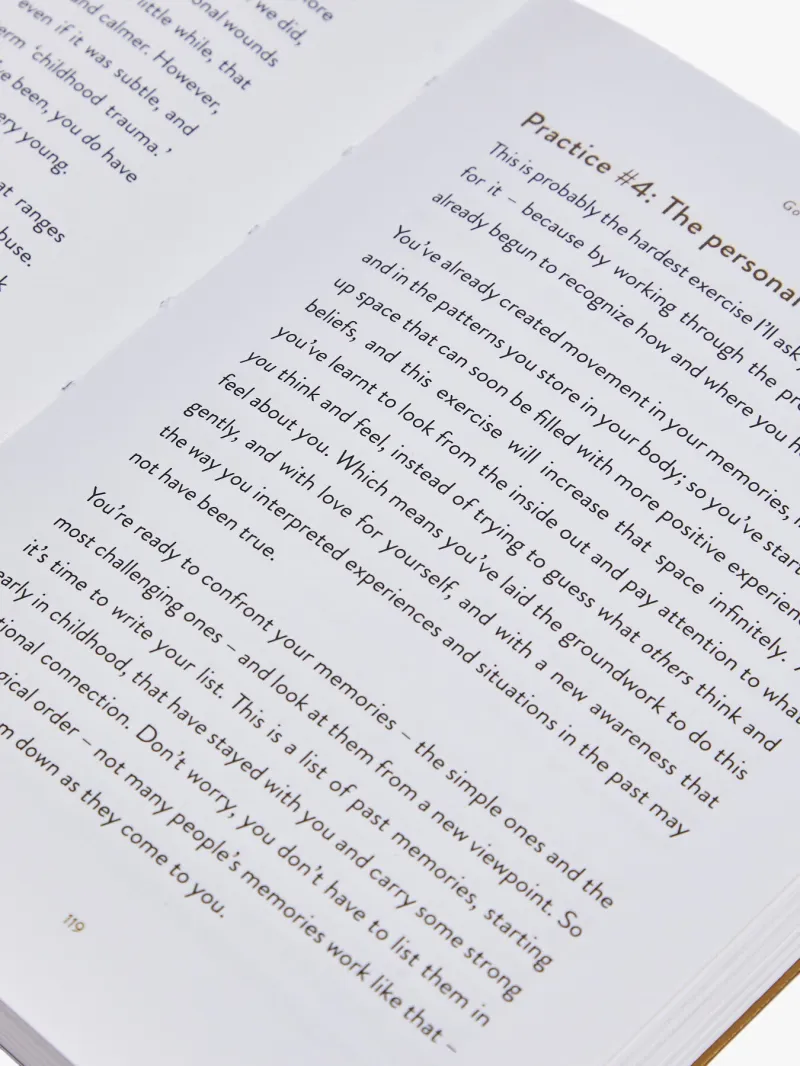 we did,
onal wounds
little while, that
and calmer. However,
even if it was subtle, and
erm ‘childhood trauma.’
’ve been, you do have
ery young.
at ranges
buse.
Go
Practice #4: The personal
This is probably the hardest exercise I’ll ask
for it – because by working through the pre
already begun to recognize how and where you h
You’ve already created movement in your memories,
and in the patterns you store in your body; so you’ve start
up space that can soon be filled with more positive experien
beliefs, and this exercise will increase that space infinitely.
you’ve learnt to look from the inside out and pay attention to what
you think and feel, instead of trying to guess what others think and
feel about you. Which means you’ve laid the groundwork to do this
gently, and with love for yourself, and with a new awareness that
the way you interpreted experiences and situations in the past may
not have been true.
You’re ready to confront your memories – the simple ones and the
most challenging ones – and look at them from a new viewpoint. So
it’s time to write your list. This is a list of past memories, starting
early in childhood, that have stayed with you and carry some strong
tional connection. Don’t worry, you don’t have to list them in
gical order – not many people’s memories work like that –
m down as they come to you.
119